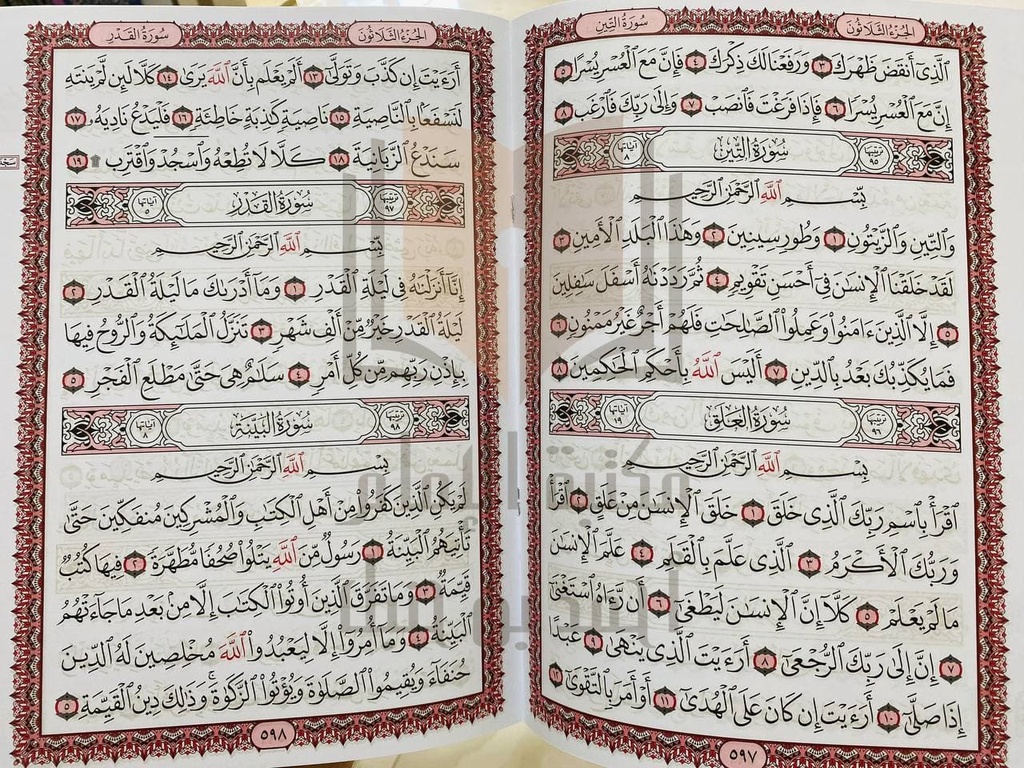 الجُزْءُ الثَّلَاثُونَ
سُورَةُ التِّينِ
ٱلَّذِىٓ أَنقَضَ ظَهْرَكَ ٣ وَرَفَعْنَا لَكَ ذِكْرَكَ ٤ فَإِنَّ مَعَ ٱلْعُسْرِ يُسْرًا ٥
إِنَّ مَعَ ٱلْعُسْرِ يُسْرًا ٦ فَإِذَا فَرَغْتَ فَٱنصَبْ ٧ وَإِلَىٰ رَبِّكَ فَٱرْغَب ٨
ترتيبها ٩٥ سُورَةُ التِّينِ آياتها ٨
بِسْمِ ٱللَّهِ ٱلرَّحْمَٰنِ ٱلرَّحِيمِ
وَٱلتِّينِ وَٱلزَّيْتُونِ ١ وَطُورِ سِينِينَ ٢ وَهَٰذَا ٱلْبَلَدِ ٱلْأَمِينِ ٣
لَقَدْ خَلَقْنَا ٱلْإِنسَٰنَ فِىٓ أَحْسَنِ تَقْوِيمٍ ٤ ثُمَّ رَدَدْنَٰهُ أَسْفَلَ سَٰفِلِينَ
٥ إِلَّا ٱلَّذِينَ ءَامَنُوا۟ وَعَمِلُوا۟ ٱلصَّٰلِحَٰتِ فَلَهُمْ أَجْرٌ غَيْرُ مَمْنُونٍ ٦
فَمَا يُكَذِّبُكَ بَعْدُ بِٱلدِّينِ ٧ أَلَيْسَ ٱللَّهُ بِأَحْكَمِ ٱلْحَٰكِمِينَ ٨
ترتيبها ٩٦ سُورَةُ العَلَقِ آياتها ١٩
بِسْمِ ٱللَّهِ ٱلرَّحْمَٰنِ ٱلرَّحِيمِ
ٱقْرَأْ بِٱسْمِ رَبِّكَ ٱلَّذِى خَلَقَ ١ خَلَقَ ٱلْإِنسَٰنَ مِنْ عَلَقٍ ٢ ٱقْرَأْ
وَرَبُّكَ ٱلْأَكْرَمُ ٣ ٱلَّذِى عَلَّمَ بِٱلْقَلَمِ ٤ عَلَّمَ ٱلْإِنسَٰنَ
مَا لَمْ يَعْلَمْ ٥ كَلَّآ إِنَّ ٱلْإِنسَٰنَ لَيَطْغَىٰٓ ٦ أَن رَّءَاهُ ٱسْتَغْنَىٰٓ
٧ إِنَّ إِلَىٰ رَبِّكَ ٱلرُّجْعَىٰٓ ٨ أَرَءَيْتَ ٱلَّذِى يَنْهَىٰ ٩ عَبْدًا
إِذَا صَلَّىٰٓ ١٠ أَرَءَيْتَ إِن كَانَ عَلَى ٱلْهُدَىٰٓ ١١ أَوْ أَمَرَ بِٱلتَّقْوَىٰٓ ١٢
٥٩٧
الجُزْءُ الثَّلَاثُونَ
سُورَةُ القَدْرِ
أَرَءَيْتَ إِن كَذَّبَ وَتَوَلَّىٰٓ ١٣ أَلَمْ يَعْلَم بِأَنَّ ٱللَّهَ يَرَىٰ ١٤ كَلَّا لَئِن لَّمْ يَنتَهِ
لَنَسْفَعًۢا بِٱلنَّاصِيَةِ ١٥ نَاصِيَةٍ كَٰذِبَةٍ خَاطِئَةٍ ١٦ فَلْيَدْعُ نَادِيَهُۥ ١٧
سَنَدْعُ ٱلزَّبَانِيَةَ ١٨ كَلَّا لَا تُطِعْهُ وَٱسْجُدْ وَٱقْتَرِب ۩ ١٩
ترتيبها ٩٧ سُورَةُ القَدْرِ آياتها ٥
بِسْمِ ٱللَّهِ ٱلرَّحْمَٰنِ ٱلرَّحِيمِ
إِنَّآ أَنزَلْنَٰهُ فِى لَيْلَةِ ٱلْقَدْرِ ١ وَمَآ أَدْرَىٰكَ مَا لَيْلَةُ ٱلْقَدْرِ ٢
لَيْلَةُ ٱلْقَدْرِ خَيْرٌ مِّنْ أَلْفِ شَهْرٍ ٣ تَنَزَّلُ ٱلْمَلَٰٓئِكَةُ وَٱلرُّوحُ فِيهَا
بِإِذْنِ رَبِّهِم مِّن كُلِّ أَمْرٍ ٤ سَلَٰمٌ هِىَ حَتَّىٰ مَطْلَعِ ٱلْفَجْرِ ٥
ترتيبها ٩٨ سُورَةُ البَيِّنَةِ آياتها ٨
بِسْمِ ٱللَّهِ ٱلرَّحْمَٰنِ ٱلرَّحِيمِ
لَمْ يَكُنِ ٱلَّذِينَ كَفَرُوا۟ مِنْ أَهْلِ ٱلْكِتَٰبِ وَٱلْمُشْرِكِينَ مُنفَكِّينَ حَتَّىٰ
تَأْتِيَهُمُ ٱلْبَيِّنَةُ ١ رَسُولٌ مِّنَ ٱللَّهِ يَتْلُوا۟ صُحُفًا مُّطَهَّرَةً ٢ فِيهَا كُتُبٌ
قَيِّمَةٌ ٣ وَمَا تَفَرَّقَ ٱلَّذِينَ أُوتُوا۟ ٱلْكِتَٰبَ إِلَّا مِنۢ بَعْدِ مَا جَآءَتْهُمُ
ٱلْبَيِّنَةُ ٤ وَمَآ أُمِرُوٓا۟ إِلَّا لِيَعْبُدُوا۟ ٱللَّهَ مُخْلِصِينَ لَهُ ٱلدِّينَ
حُنَفَآءَ وَيُقِيمُوا۟ ٱلصَّلَوٰةَ وَيُؤْتُوا۟ ٱلزَّكَوٰةَ ۚ وَذَٰلِكَ دِينُ ٱلْقَيِّمَةِ ٥
٥٩٨
مكتبة